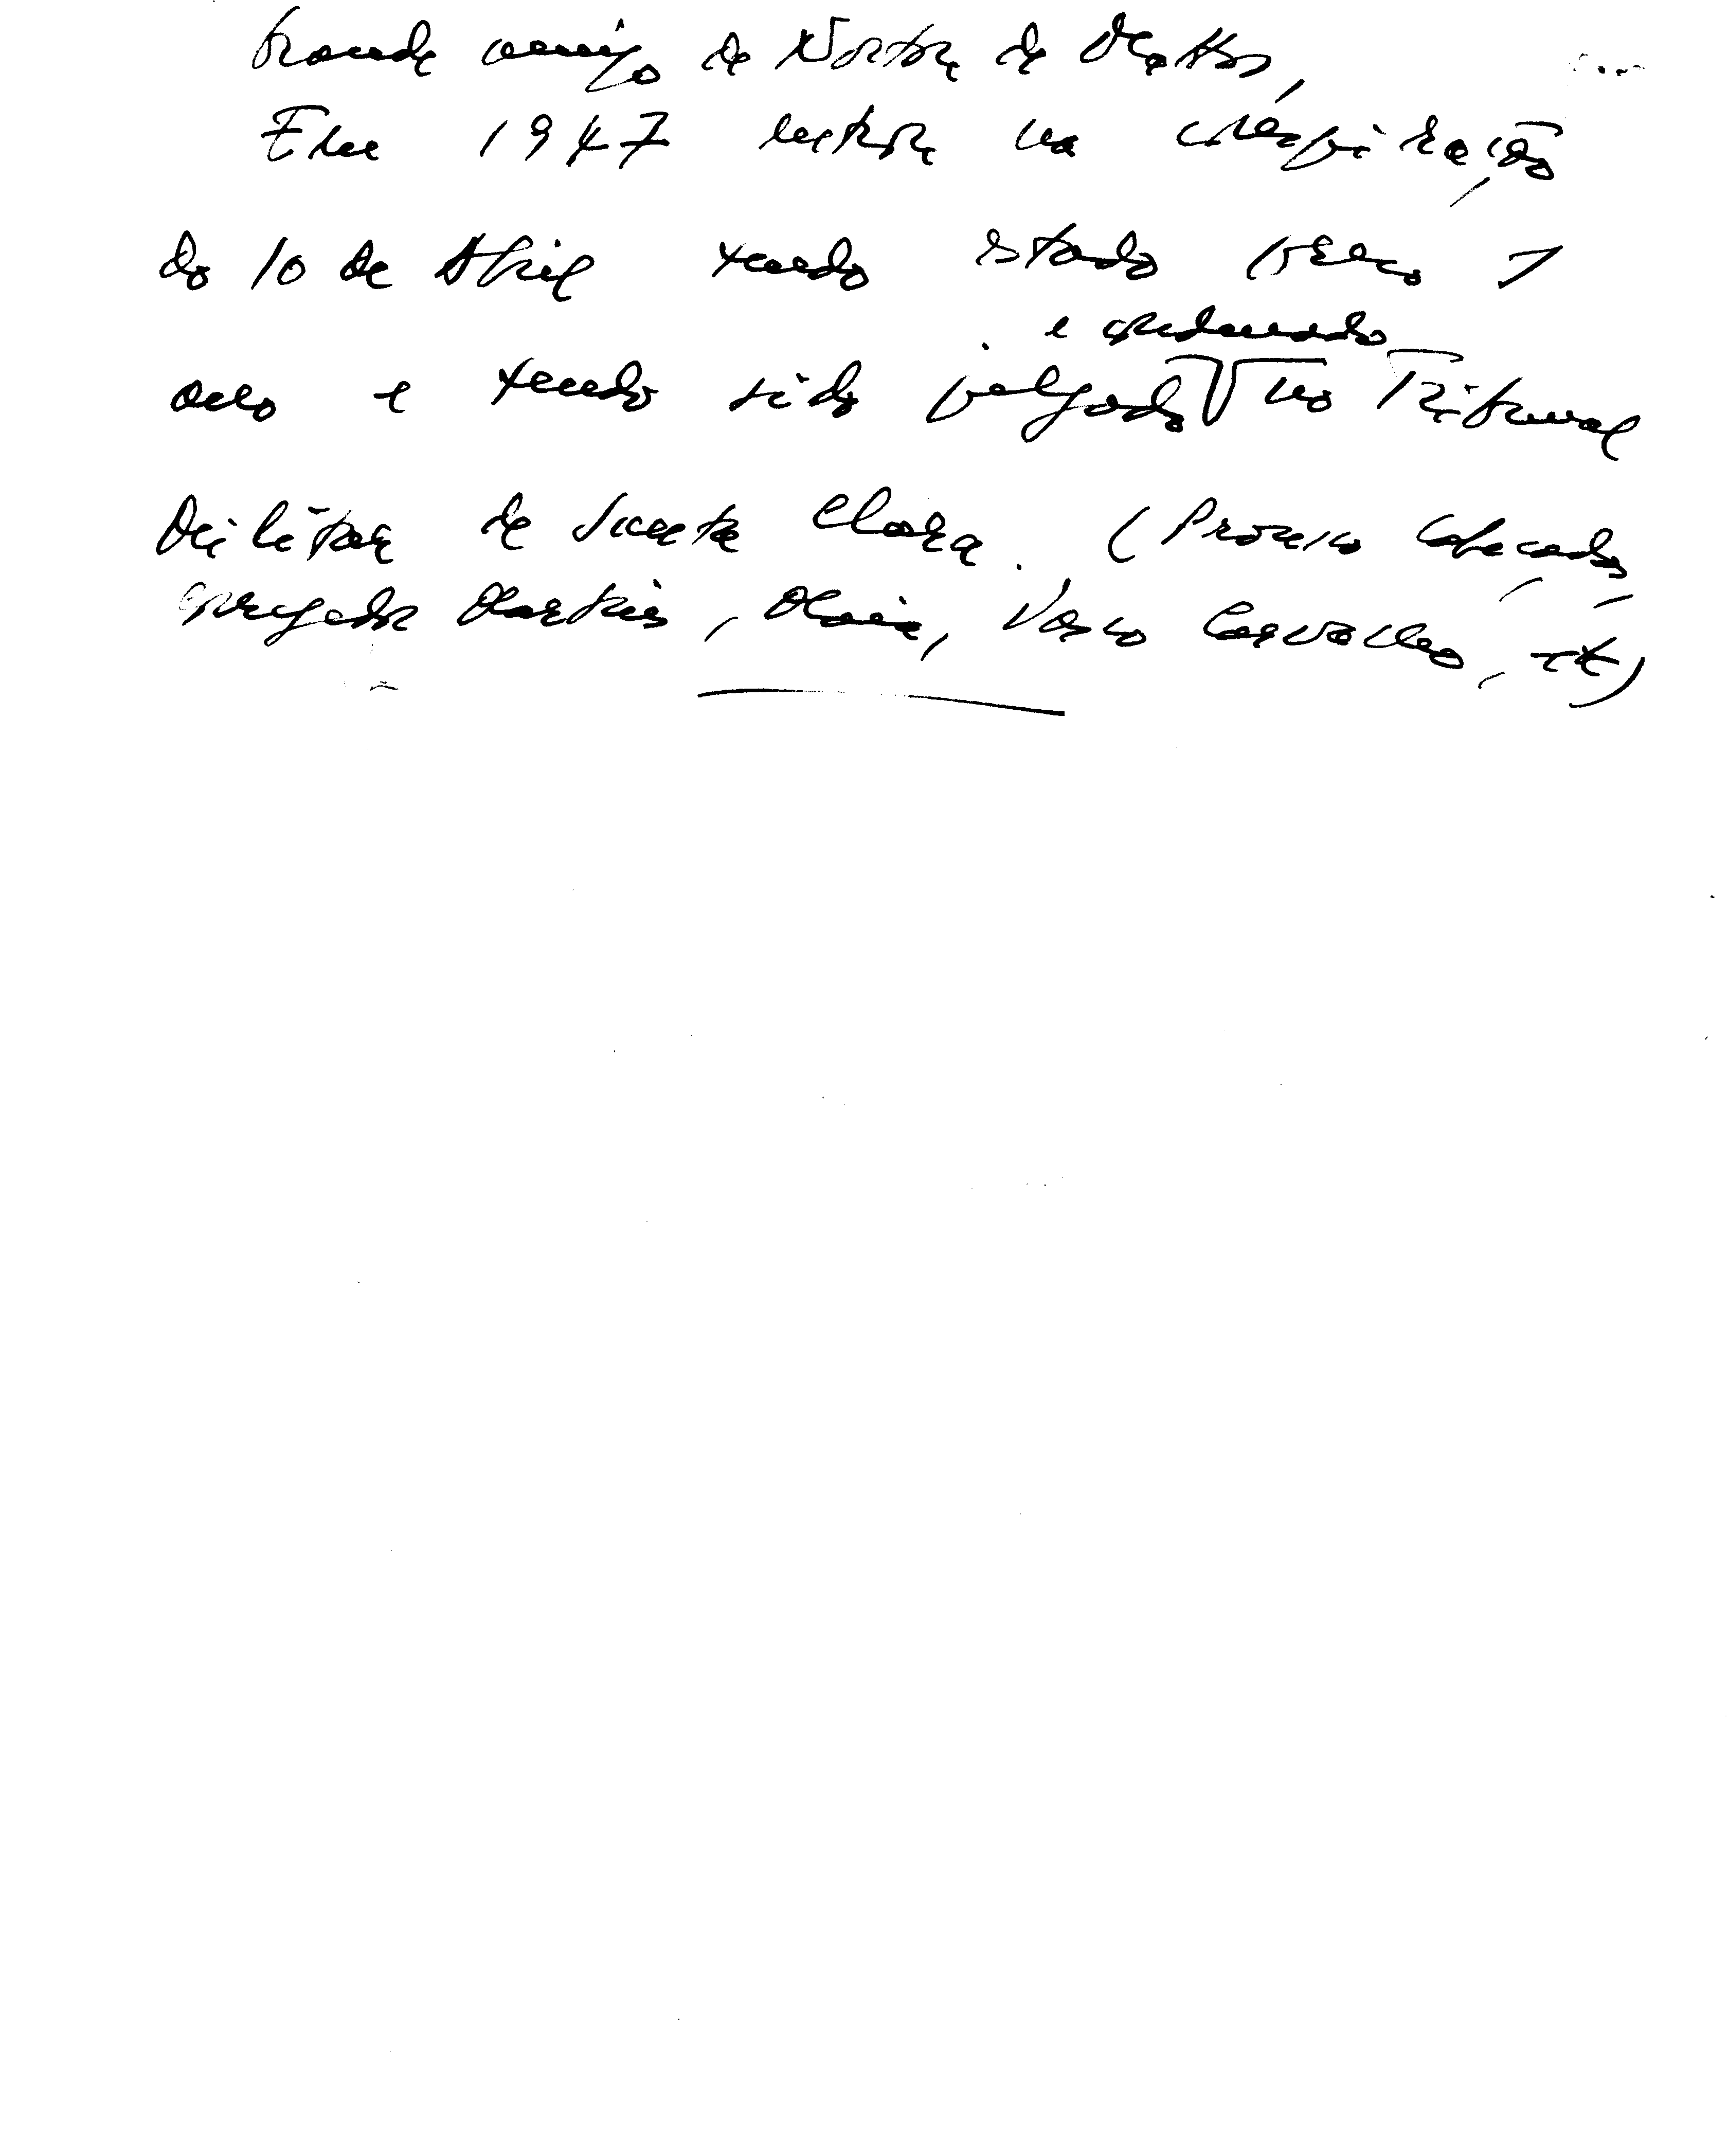 Grande amigo de Norton de Mattos,
Em 1947 entra na conspiração
do 10 de Abril tendo estado preso 1
e condenado
ano e tendo sido julgado no Tribunal
Militar de Santa Clara. (Processo Cabeçadas,
Marques Godinho, Maia, Vasco Carvalho, etc)